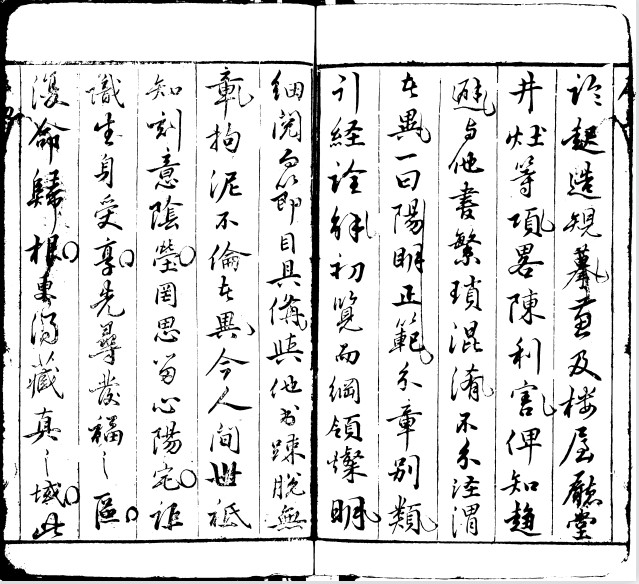 論起造規摹並及楼屋廳堂
井灶等項畧陳利害俾知趨
避与他書繁瑣混淆不分涇渭
大異一曰陽明正範分章別類
引経詮解初覽而綱領燦明
細閱而即目具備與他書踈脫無
章拘泥不倫大異今人間世祗
知刻意陰塋罔思留心陽宅詎
識生身受享先尋發福之區
復命歸根專得藏真之域此